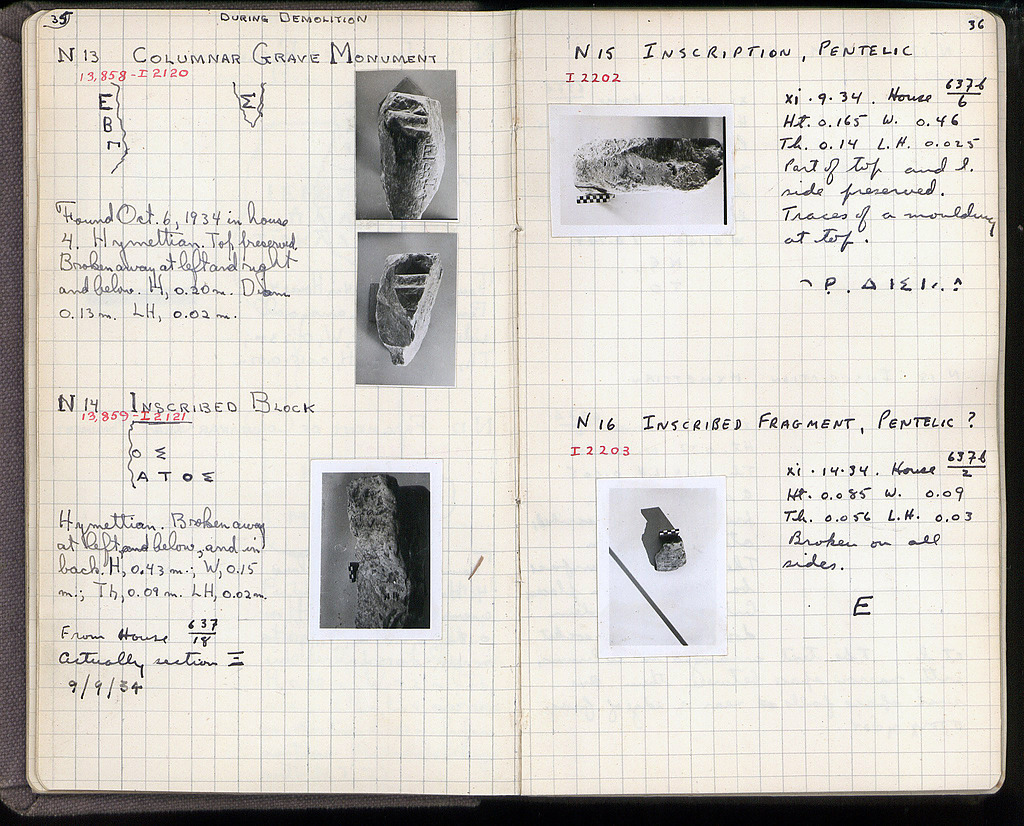 35
DURING DEMOLITION
N 13 COLUMNAR GRAVE MONUMENT
13,858 - I 2120
Ε Σ
Β
Γ
Found Oct. 6, 1934 in house
4. Hymettian. Top preserved.
Broken away at left and right
and below. H, 0.20 m. Diam.
0.13 m. LH, 0.02 m.
N 14 INSCRIBED BLOCK
13,859 - I 2121
Ο Σ
Α Τ Ο Σ
Hymettian. Broken away
at left, and below, and in
back. H, 0.43 m.; W, 0.15
m.; Th, 0.09 m. LH, 0.02 m.
From House 637/18
Actually section Ξ
9/9/34
36
N 15 INSCRIPTION, PENTELIC
I 2202
xi · 9 · 34 . House 637b/6
Ht. 0.165 W. 0.46
Th. 0.14 L.H. 0.025
Part of top and l.
side preserved.
Traces of a moulding
at top.
Ρ . Δ Ι Σ Ι
N 16 INSCRIBED FRAGMENT, PENTELIC ?
I 2203
xi · 14 · 34 . House 637b/2
Ht. 0.085 W. 0.09
Th. 0.056 L.H. 0.03
Broken on all
sides.
Ε